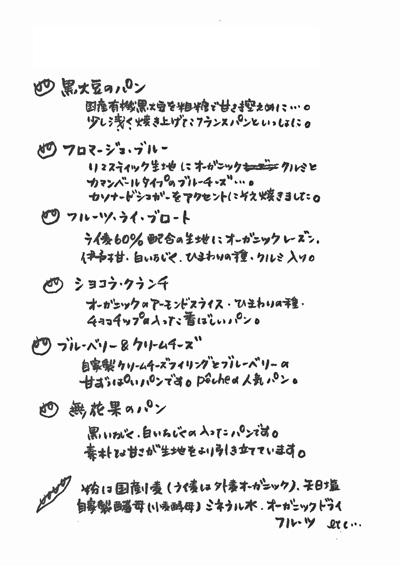 黒大豆のパン
国産有機黒大豆を粗糖で甘さ控えめに…。
少し浅く焼き上げたフランスパンといっしょに。
フロマージュ・ブルー
リュスティック生地にオーガニッククルミと
カマンベールタイプのブルーチーズ…。
カソナードシュガーをアクセントにそえ焼きました。
フルーツ・ライ・ブロート
ライ麦60%配合の生地にオーガニックレーズン、
伊予柑、白いちじく、ひまわりの種・クルミ入り。
ショコラ・クランチ
オーガニックのアーモンドスライス・ひまわりの種・
チョコチップの入った香ばしいパン。
ブルーベリー&クリームチーズ
自家製クリームチーズフィリングとブルーベリーの
甘ずっぱいパンです。pâcheの人気パン。
無花果のパン
黒いちじく、白いちじくの入ったパンです。
素朴な甘さが生地をより引き立てています。
粉は国産小麦(ライ麦は外麦オーガニック)、天日塩
自家製酵母(小麦酵母)ミネラル水、オーガニックドライ
フルーツ etc…